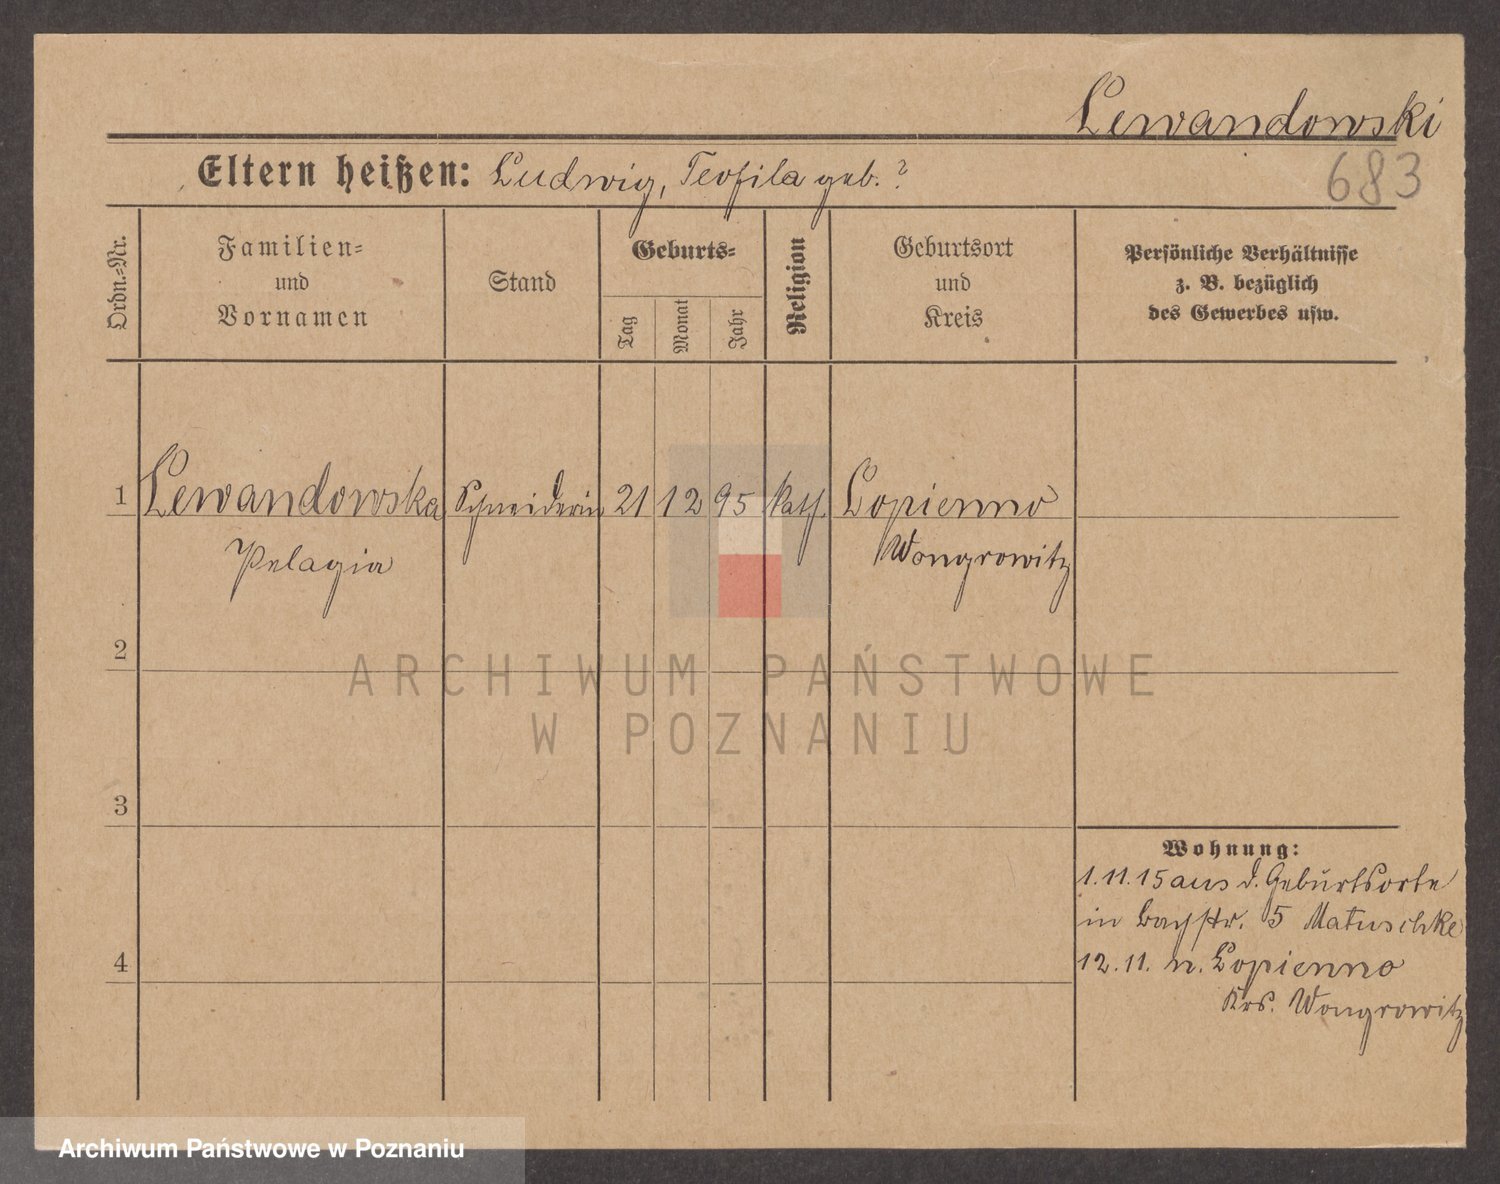 Lewandowski
683
Eltern heißen: Ludwig, Teofila geb. ?
Ordn.=Nr.
Familien=
und
Vornamen
Stand
Geburts=
Tag
Monat
Jahr
Religion
Geburtsort
und
Kreis
Persönliche Verhältnisse
z. B. bezüglich
des Gewerbes usw.
1 Lewandowska Schneiderin 21 12 95 kath. Lopienno
Pelagia Wongrowitz
2
ARCHIWUM PAŃSTWOWE
W POZNANIU
3
Wohnung:
1.11.15 aus d. Geburtsorte
in 5 Matuschke
4
12.11. n. Lopienno
Krs. Wongrowitz
Archiwum Państwowe w Poznaniu